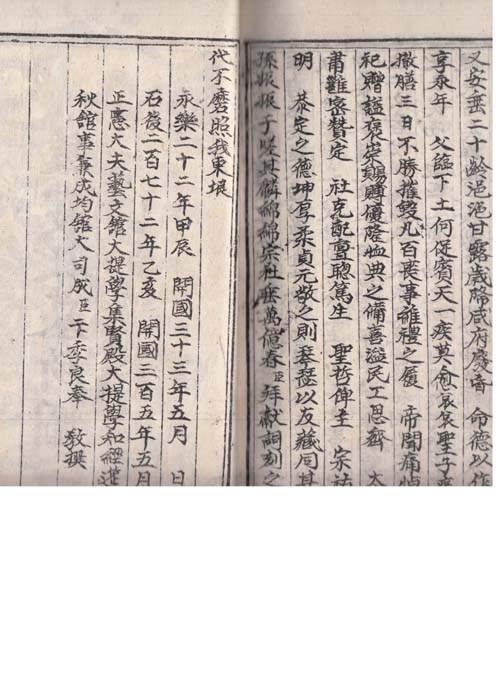 又安垂二十齡浥浥甘露歲降咸府慶音 命德以作
享永年 父臨下土何促賓天一疾莫愈哀哀聖子
撤膳三日不勝摧毀凡百喪事維禮之屨 帝聞痛悼
祀贈謚褒崇賜賻優隆恤典之備喜溢民工思齊 大
肅雝密賛定 社克配亶聰篤生 聖哲俾主 宗祜
明 恭定之德坤厚柔貞元敬之則琴瑟以友藏同其
孫振振子姓其麟綿綿宗社垂萬億春臣拜獻詞刻之
代不磨照我東垠
永樂二十二年甲辰 開國三十三年五月 日
石後二百七十二年乙亥 開國三百五年五月
正憲大夫藝文館大提學集賢殿大提學知經筵
秋館事兼成均館大司成臣卞季良奉 敎撰